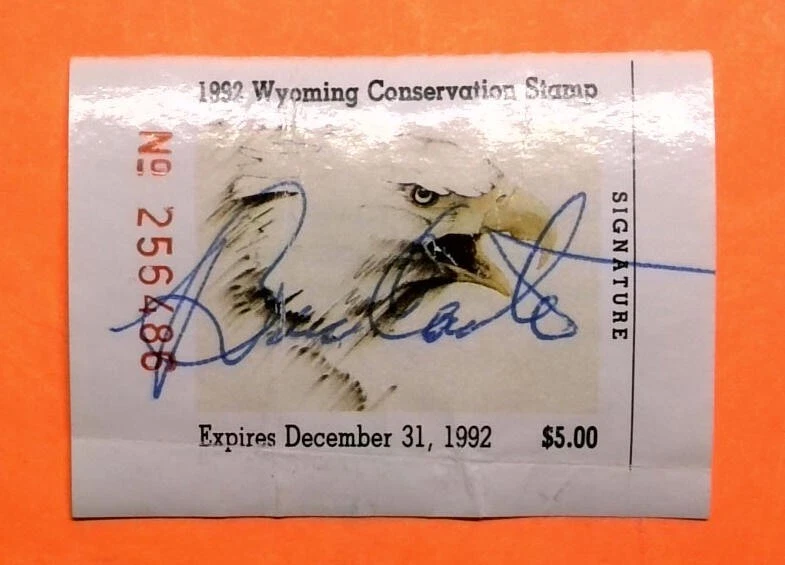 1992 Wyoming Conservation Stamp
No 256486
SIGNATURE
Expires December 31, 1992 $5.00